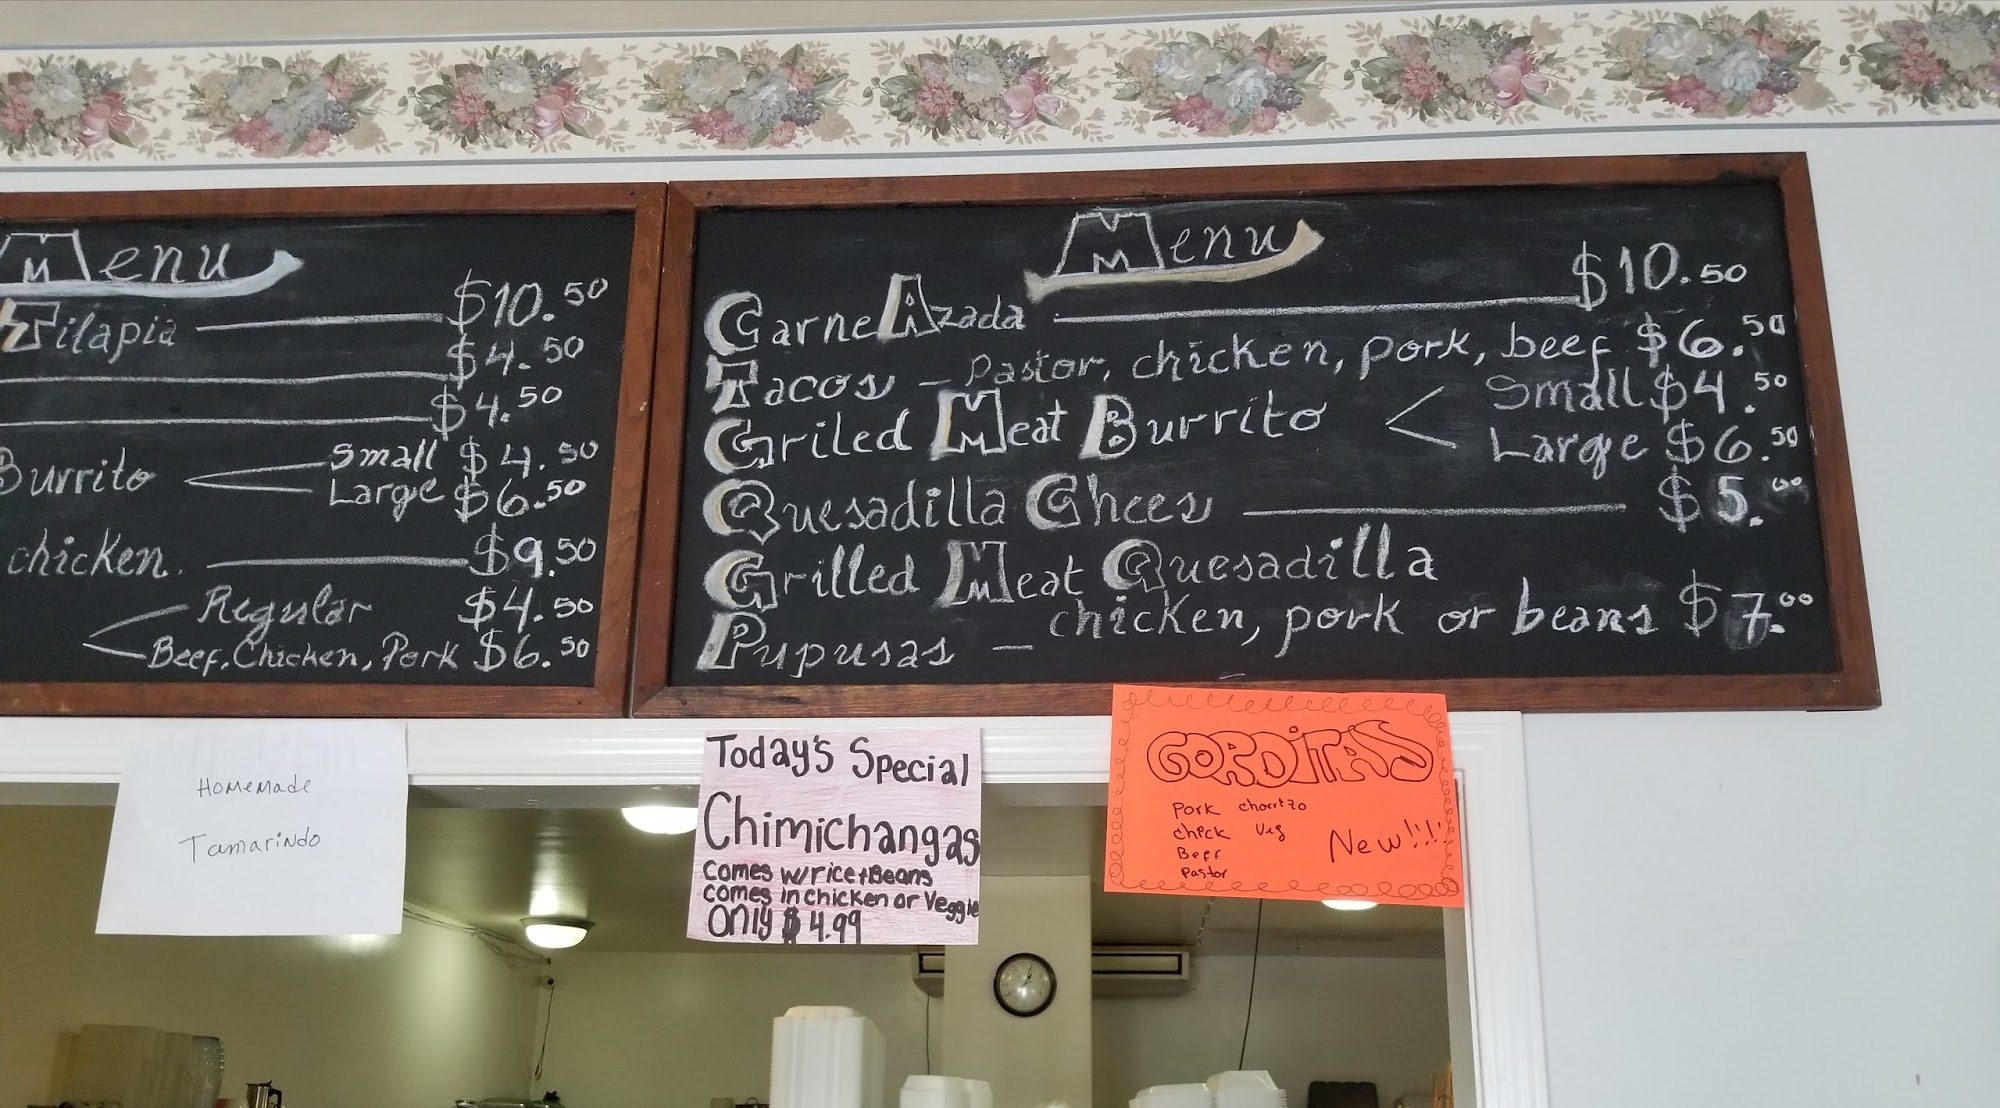 Menu
Tilapia $10.50
$4.50
$4.50
Burrito Small $4.50
Large $6.50
chicken. $9.50
Regular $4.50
Beef, Chicken, Pork $6.50
Menu
Carne Azada $10.50
Tacos - Pastor, chicken, pork, beef $6.50
Griled Meat Burrito Small $4.50
Large $6.50
Quesadilla Chees $5.00
Grilled Meat Quesadilla
Pupusas - chicken, pork or beans $7.00
Homemade
Tamarindo
Today's Special
Chimichangas
comes w/rice+Beans
comes in chicken or Veggie
Only $4.99
GORDITAS
Pork chorizo
chick Veg
Beef
Pastor
New!!!!